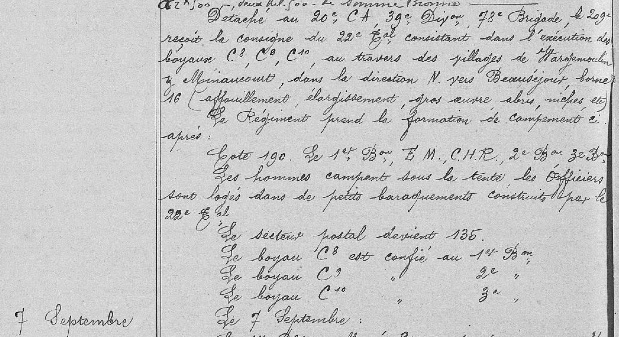 Détaché au 20e, CA, 39e Dijon, 78e Brigade, le 209e
reçoit la consigne du 22e Tal consistant dans l'exécution des
boyaux C8, C9, C10, au travers des villages de Wargemoulin
& Minaucourt, dans la direction N. vers Beauséjour, borne
16 (affouillement, élargissement, gros œuvre abris, niches, etc)
Le Régiment prend la formation de campement ci
après :
Cote 190. Le 1er Bon, E M., C.H.R., 2e Bon 3e Bon
Les hommes campent sous la tente les Officiers
sont logés dans de petits baraquements construits par le
22e Tal
Le secteur postal devient 135.
Le boyau C8 est confié au 1er Bon
Le boyau C9 " 2e "
Le boyau C10 " 3e "
7 Septembre
Le 7 Septembre :